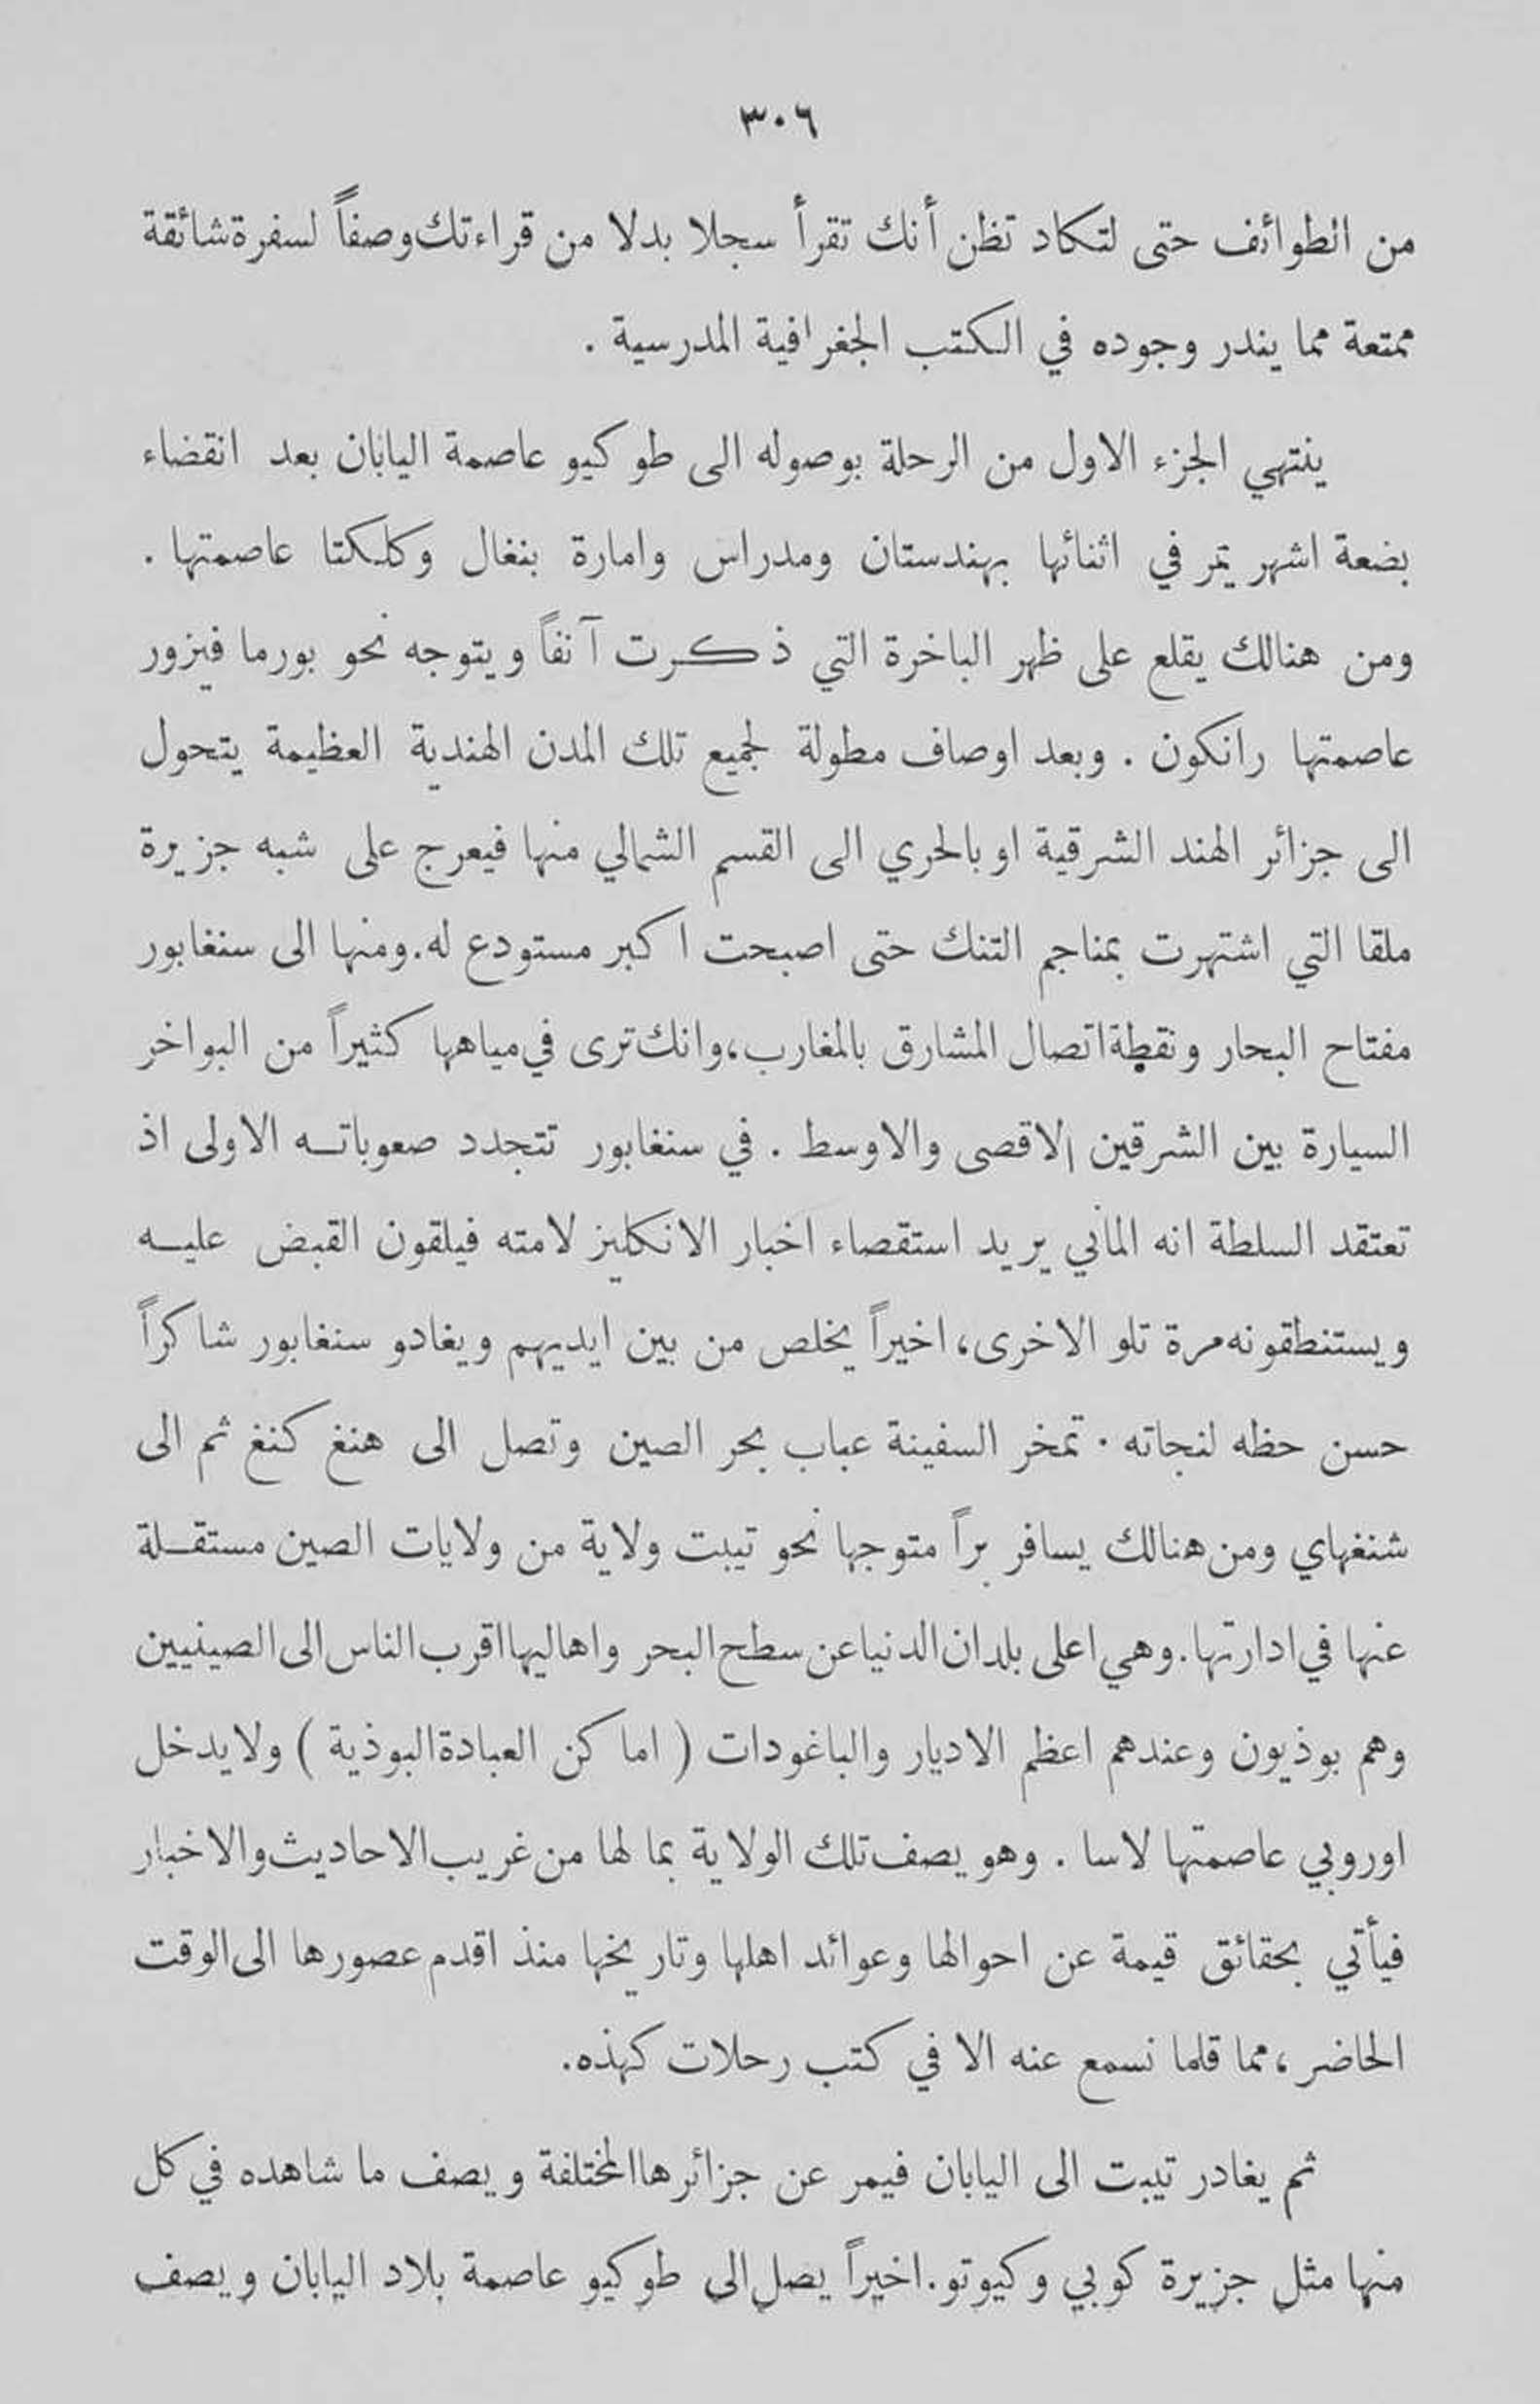 ٣٠٦
من الطوائف حتى لتكاد تظن أنك تقرأ سجلا بدلا من قراءتك وصفاً لسفرة شائقة
ممتعة مما يندر وجوده في الكتب الجغرافية المدرسية .
ينتهي الجزء الاول من الرحلة بوصوله الى طوكيو عاصمة اليابان بعد انقضاء
بضعة اشهر يمر في اثنائها بهندستان ومدراس وامارة بنغال وكلكتا عاصمتها .
ومن هنالك يقلع على ظهر الباخرة التي ذكرت آنفاً ويتوجه نحو بورما فيزور
عاصمتها رانكون . وبعد اوصاف مطولة لجميع تلك المدن الهندية العظيمة يتحول
الى جزائر الهند الشرقية او بالحري الى القسم الشمالي منها فيعرج على شبه جزيرة
ملقا التي اشتهرت بمناجم التنك حتى اصبحت اكبر مستودع له. ومنها الى سنغابور
مفتاح البحار ونقطة اتصال المشارق بالمغارب، وانك ترى في مياهها كثيراً من البواخر
السيارة بين الشرقين الاقصى والاوسط . في سنغابور تتجدد صعوباته الاولى اذ
تعتقد السلطة انه الماني يريد استقصاء اخبار الانكليز لامته فيلقون القبض عليه
ويستنطقونه مرة تلو الاخرى، اخيراً يخلص من بين ايديهم ويغادو سنغابور شاكراً
حسن حظه لنجاته . تمخر السفينة عباب بحر الصين وتصل الى هنغ كنغ ثم الى
شنغهاي ومن هنالك يسافر براً متوجها نحو تيبت ولاية من ولايات الصين مستقلة
عنها في ادارتها. وهي اعلى بلدان الدنيا عن سطح البحر واهاليها اقرب الناس الى الصينيين
وهم بوذيون وعندهم اعظم الاديار والباغودات ( اماكن العبادة البوذية ) ولا يدخل
اوروبي عاصمتها لاسا . وهو يصف تلك الولاية بما لها من غريب الاحاديث والاخبار
فيأتي بحقائق قيمة عن احوالها وعوائد اهلها وتاريخها منذ اقدم عصورها الى الوقت
الحاضر ، مما قلما نسمع عنه الا في كتب رحلات كهذه.
ثم يغادر تيبت الى اليابان فيمر عن جزائرها المختلفة ويصف ما شاهده في كل
منها مثل جزيرة كوبي وكيوتو. اخيراً يصل الى طوكيو عاصمة بلاد اليابان ويصف